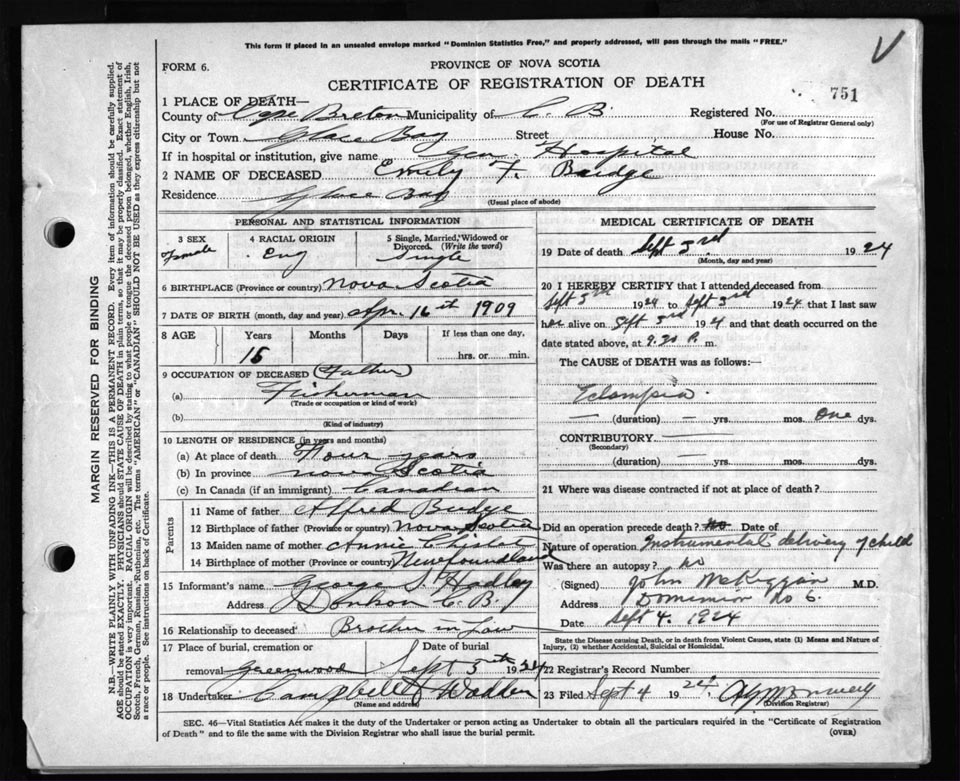 This form if placed in an unsealed envelope marked "Dominion Statistics Free," and properly addressed, will pass through the mails "FREE."
V
FORM 6.
PROVINCE OF NOVA SCOTIA
CERTIFICATE OF REGISTRATION OF DEATH
751
1 PLACE OF DEATH—
County of Cape Breton Municipality of C. B Registered No.
(For use of Registrar General only)
City or Town Glace Bay Street House No.
If in hospital or institution, give name Gen. Hospital
2 NAME OF DECEASED Emily F. Budge
Residence Glace Bay
(Usual place of abode)
PERSONAL AND STATISTICAL INFORMATION
3 SEX 4 RACIAL ORIGIN 5 Single, Married, Widowed or Divorced. (Write the word)
Female Eng Single
6 BIRTHPLACE (Province or country) Nova Scotia
7 DATE OF BIRTH (month, day and year) Apr. 16th 1909
8 AGE Years Months Days If less than one day,
15 hrs. or min.
9 OCCUPATION OF DECEASED (Father)
(a) Fisherman
(Trade or occupation or kind of work)
(b)
(Kind of industry)
10 LENGTH OF RESIDENCE (in years and months)
(a) At place of death Four years
(b) In province Nova Scotia
(c) In Canada (if an immigrant) Canadian
Parents
11 Name of father Alfred Budge
12 Birthplace of father (Province or country) Nova Scotia
13 Maiden name of mother Annie
14 Birthplace of mother (Province or country) Newfoundland
15 Informant's name George S. Hadley
Address Donkin C. B.
16 Relationship to deceased Brother in Law
17 Place of burial, cremation or removal Greenwood Date of burial Sept 5th 1924
18 Undertaker Campbell & Wadden
(Name and address)
MEDICAL CERTIFICATE OF DEATH
19 Date of death Sept 3rd 1924
(Month, day and year)
20 I HEREBY CERTIFY that I attended deceased from
Sept 3rd 1924 to Sept 3rd 1924 that I last saw
her alive on Sept 3rd 1924 and that death occurred on the
date stated above, at 9.30 P. m.
The CAUSE OF DEATH was as follows:
Eclampsia.
(duration) yrs. mos. One dys.
CONTRIBUTORY
(Secondary)
(duration) yrs. mos. dys.
21 Where was disease contracted if not at place of death?
Did an operation precede death? No Date of
Nature of operation Instrumental delivery of child
Was there an autopsy? No
(Signed) John McKiggan M.D.
Address Dominion No 6.
Date Sept 4. 1924
State the Disease causing Death, or in death from Violent Causes, state (1) Means and Nature of Injury, (2) whether Accidental, Suicidal or Homicidal.
22 Registrar's Record Number
23 Filed Sept 4 1924
(Division Registrar)
SEC. 46—Vital Statistics Act makes it the duty of the Undertaker or person acting as Undertaker to obtain all the particulars required in the "Certificate of Registration
of Death" and to file the same with the Division Registrar who shall issue the burial permit.
(OVER)
MARGIN RESERVED FOR BINDING
N.B.—WRITE PLAINLY WITH UNFADING INK—THIS IS A PERMANENT RECORD. Every item of information should be carefully supplied.
AGE should be stated EXACTLY. PHYSICIANS should STATE CAUSE OF DEATH in plain terms, so that it may be properly classified. Exact statement of
OCCUPATION is very important. RACIAL ORIGIN will be described by stating to what people or tongue the deceased person belonged, whether English, Irish,
Scotch, French, German, Russian, Ruthenian, etc. The terms "AMERICAN" or "CANADIAN" SHOULD NOT BE USED as they express citizenship but not
a race or people. See instructions on back of Certificate.